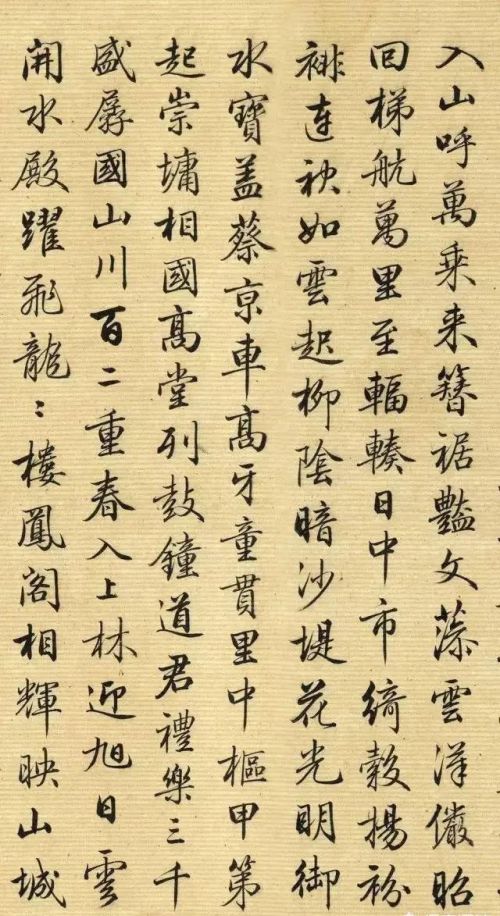 入山呼萬乘来簪裾豔文藻雲漢儼昭
回梯航萬里至輻輳日中市綺縠揚衯
裶連袂如雲起柳陰暗沙堤花光明御
水寶蓋蔡京車高牙童貫里中樞甲第
起崇墉相國高堂列鼓鐘道君禮樂三千
盛孱國山川百二重春入上林迎旭日雲
開水殿躍飛龍〻樓鳳閣相輝映山城